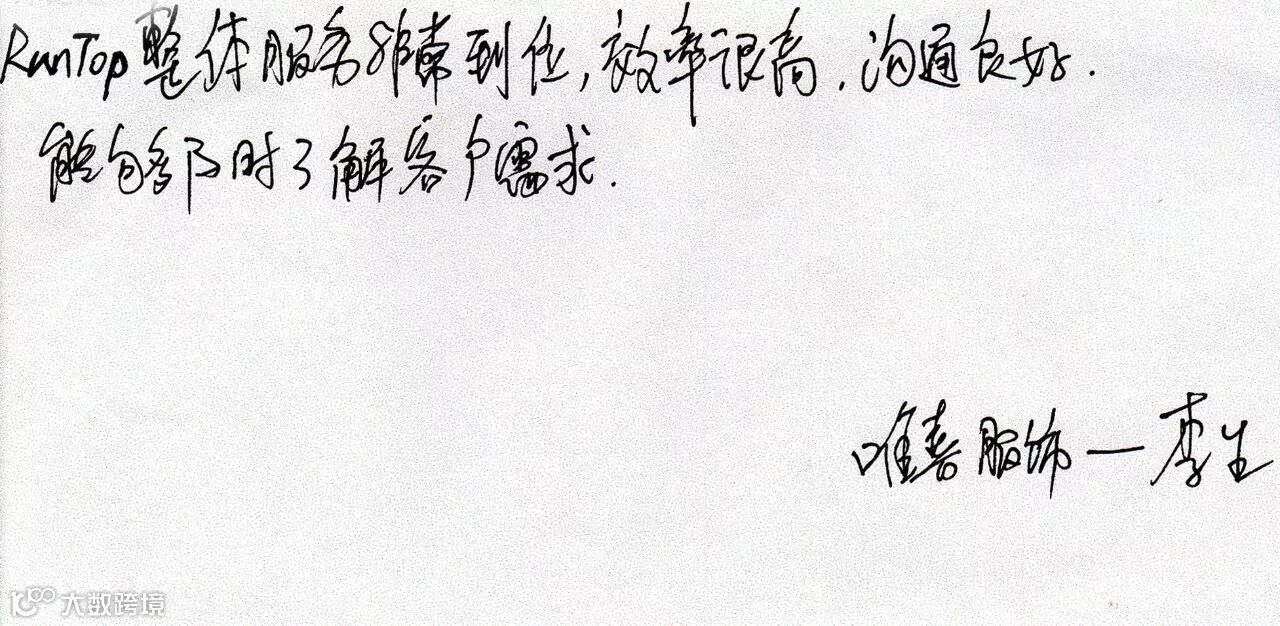 RunTop整体服务非常到位,效率很高.沟通良好.
能够及时了解客户需求.
唯喜服饰—李生
大数跨境